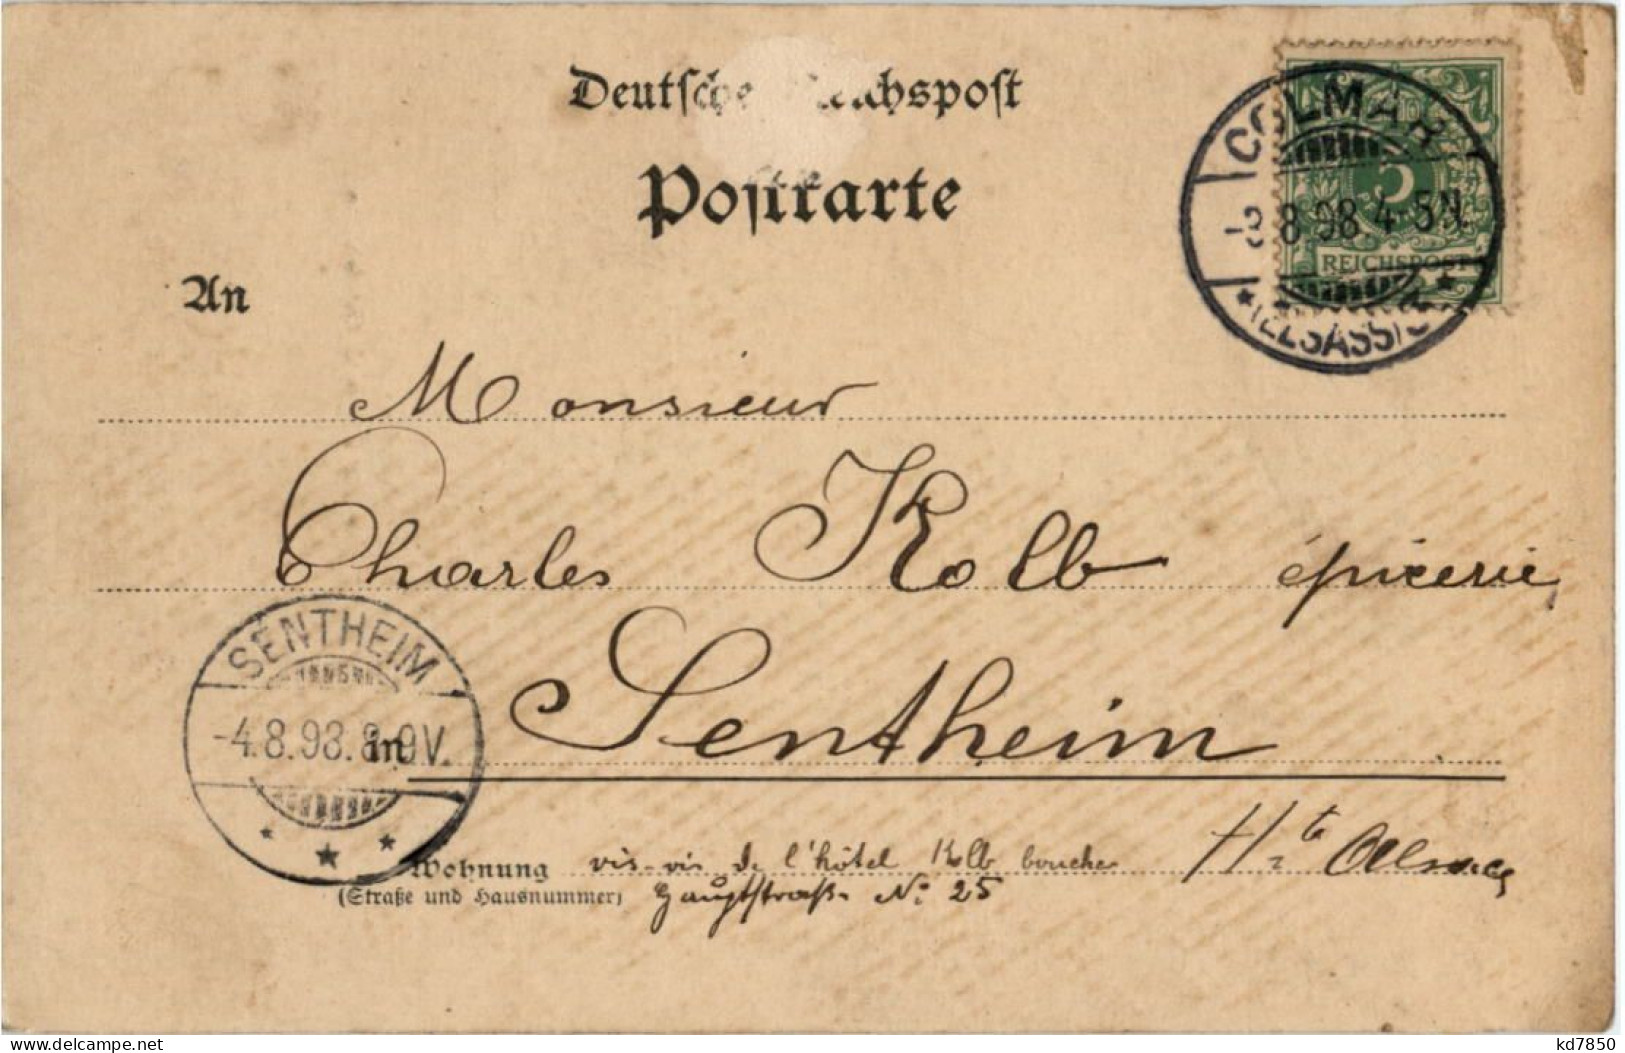 Deutsche Reichspost
Postkarte
COLMAR
3.8.98 4-5N.
* (ELSASS) *
5
REICHSPOST
An
Monsieur
Charles Kolb épicerie,
Sentheim
SENTHEIM
-4.8.98.8-9V.
in
Hte Alsace
Wohnung vis-vis de l'hôtel Kolb boucher
(Straße und Hausnummer) Hauptstraße No 25
www.delcampe.net
kd7850